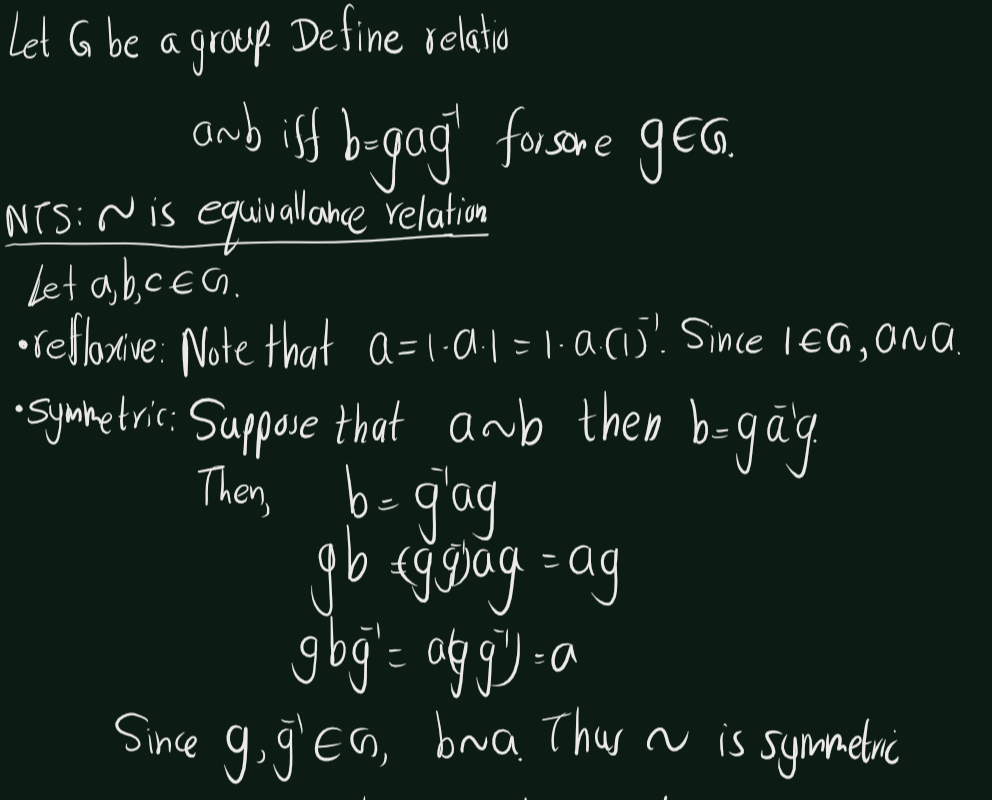 Let G be a group. Define relatio
a~b iff b=gag⁻¹ for some g∈G.
NTS: ~ is equivallance relation
Let a,b,c∈G.
•reflaxive: Note that a=1·a·1=1·a·(1)⁻¹. Since 1∈G, a~a.
•Symmetric: Suppose that a~b then b=ga⁻¹g.
Then, b=g⁻¹ag
gb=(gg⁻¹)ag=ag
gbg⁻¹=a(gg⁻¹)=a
Since g,g⁻¹∈G, b~a. Thus ~ is symmetric